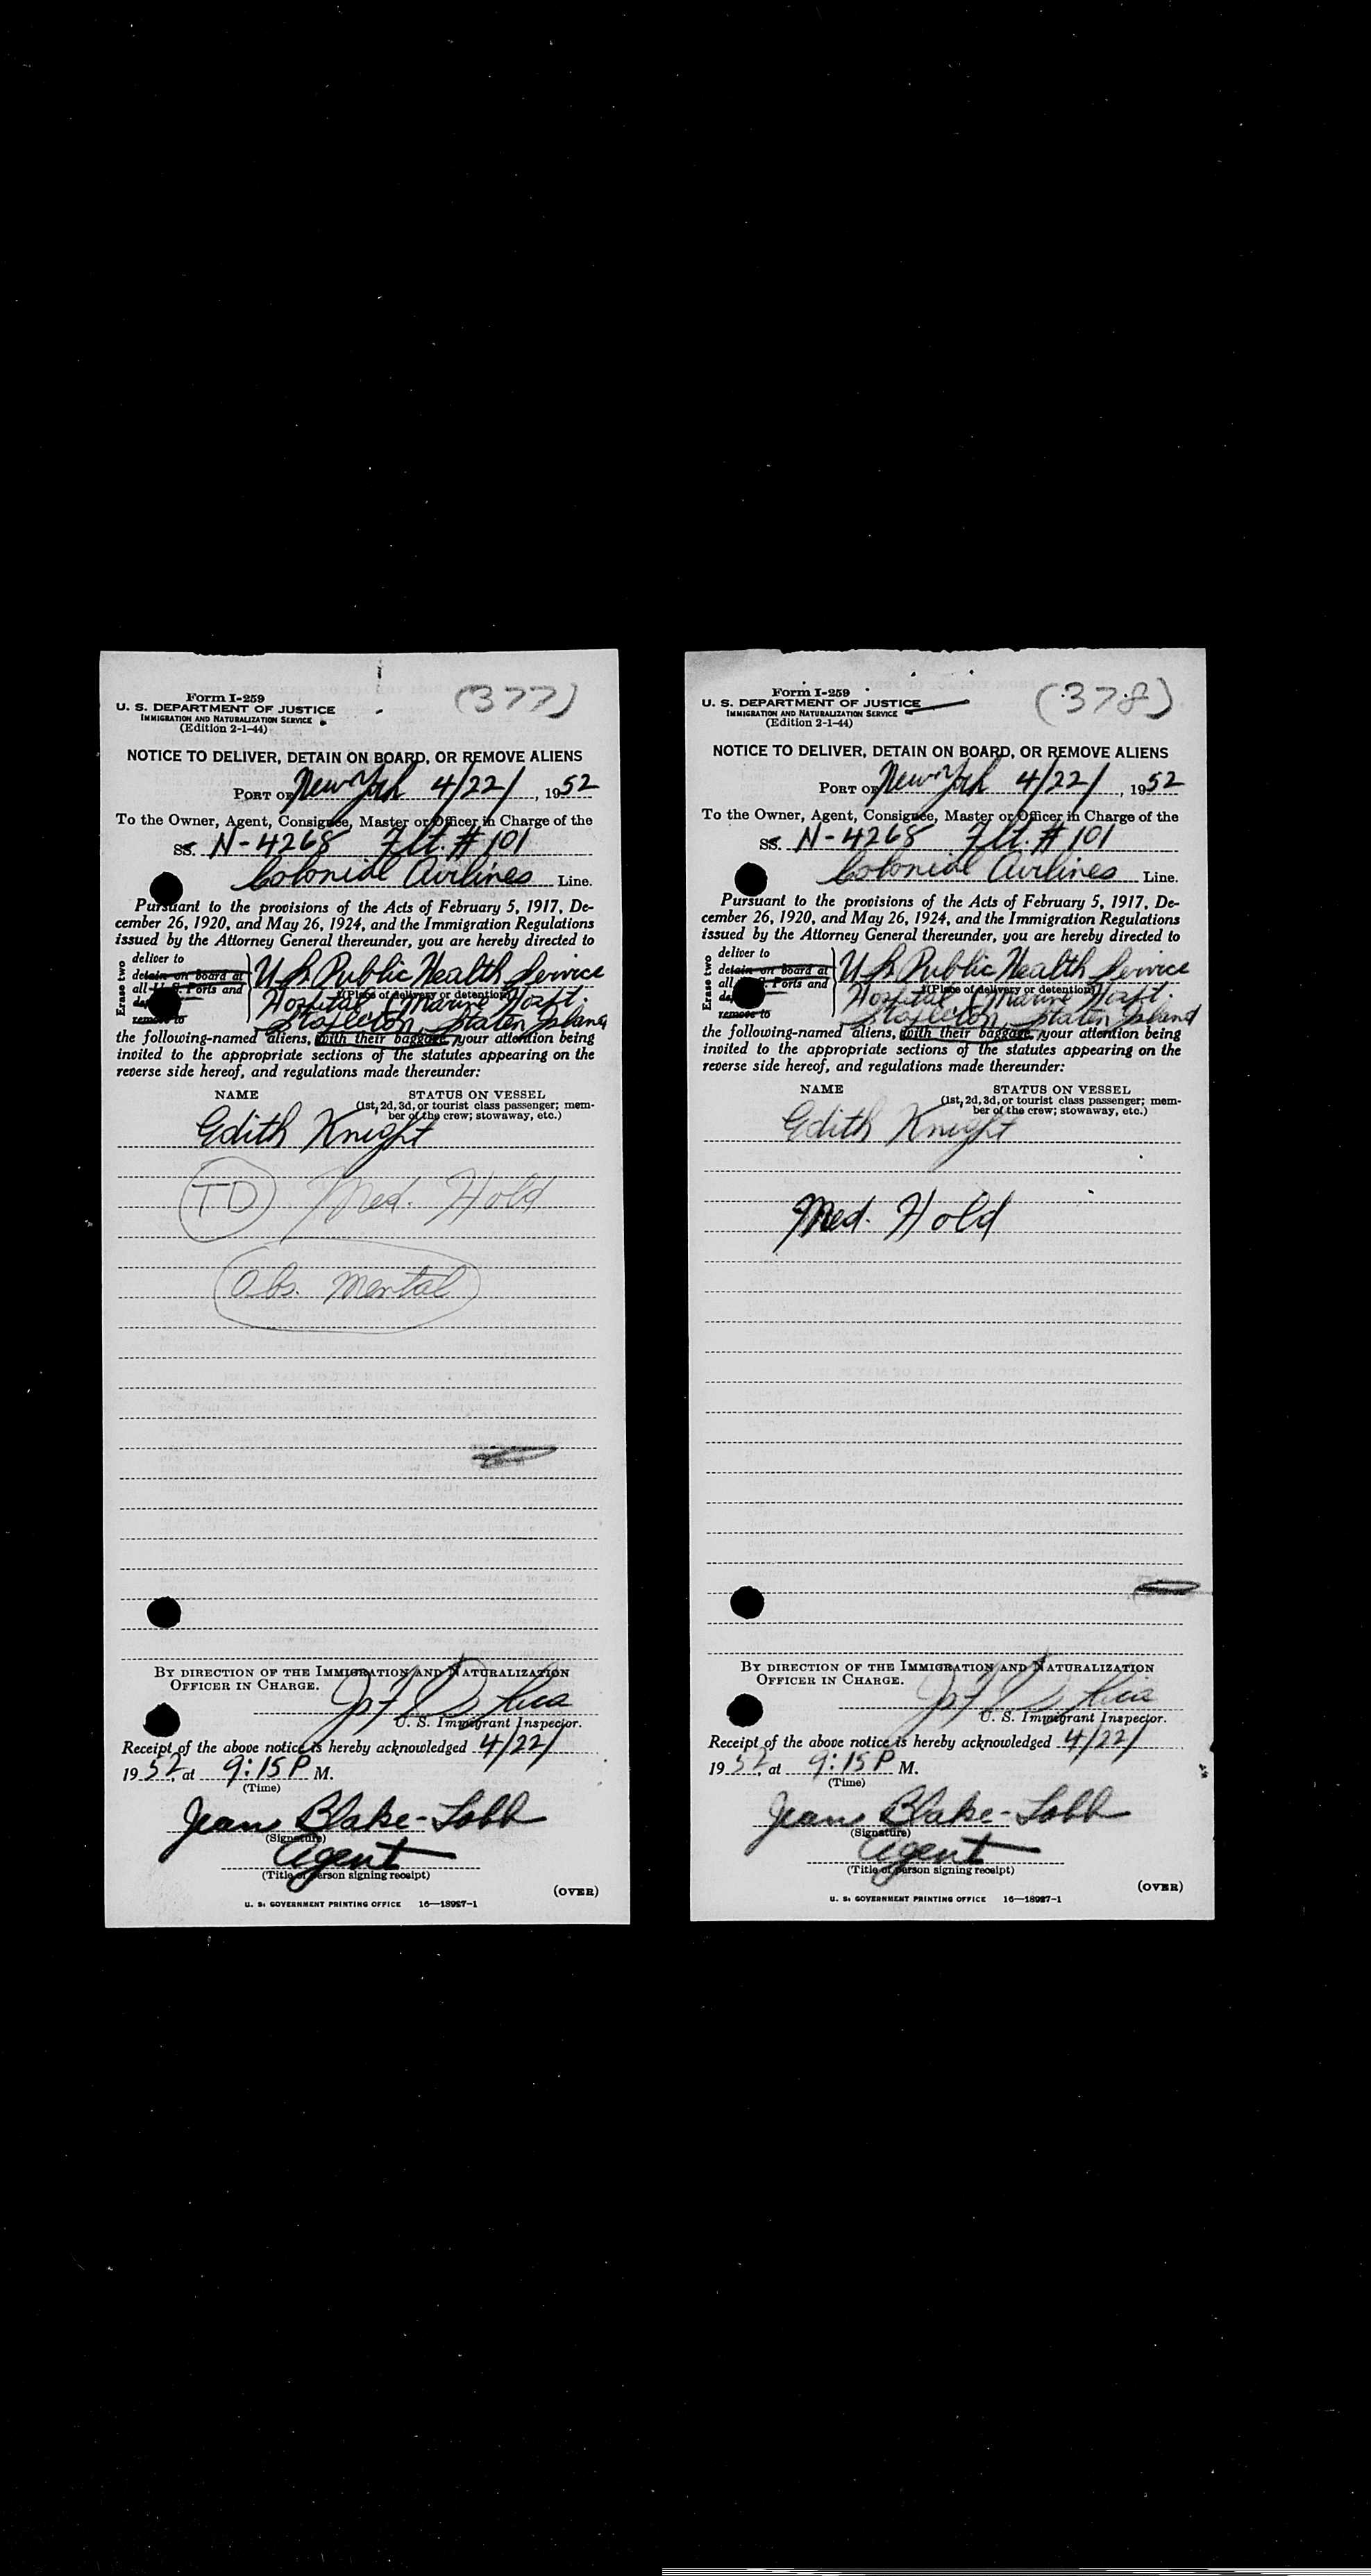 Form I-259
U. S. DEPARTMENT OF JUSTICE
IMMIGRATION AND NATURALIZATION SERVICE
(Edition 2-1-44)
(377)
NOTICE TO DELIVER, DETAIN ON BOARD, OR REMOVE ALIENS
PORT OF New York 4/22/, 1952
To the Owner, Agent, Consignee, Master or Officer in Charge of the
SS. N-4268 Flt. # 101
Colonial Airlines Line.
Pursuant to the provisions of the Acts of February 5, 1917, De-
cember 26, 1920, and May 26, 1924, and the Immigration Regulations
issued by the Attorney General thereunder, you are hereby directed to
Erase two
deliver to
detain on board at
all U. S. Ports and
remove to
U S Public Health Service
(Place of delivery or detention)
Hospital (Marine Hospt.
Stapleton, Staten Island
the following-named aliens, with their baggage, your attention being
invited to the appropriate sections of the statutes appearing on the
reverse side hereof, and regulations made thereunder:
NAME STATUS ON VESSEL
(1st, 2d, 3d, or tourist class passenger; mem-
ber of the crew; stowaway, etc.)
Edith Knight
TD Med. Hold
Obs. Mental
BY DIRECTION OF THE IMMIGRATION AND NATURALIZATION
OFFICER IN CHARGE.
U. S. Immigrant Inspector.
Receipt of the above notice is hereby acknowledged 4/22/
1952, at 9:15 P M.
(Time)
Jean Blake-Lobb
(Signature)
Agent
(Title of person signing receipt)
(OVER)
U. S. GOVERNMENT PRINTING OFFICE 16—18987-1
Form I-259
U. S. DEPARTMENT OF JUSTICE
IMMIGRATION AND NATURALIZATION SERVICE
(Edition 2-1-44)
(378)
NOTICE TO DELIVER, DETAIN ON BOARD, OR REMOVE ALIENS
PORT OF New York 4/22/, 1952
To the Owner, Agent, Consignee, Master or Officer in Charge of the
SS. N-4268 Flt. # 101
Colonial Airlines Line.
Pursuant to the provisions of the Acts of February 5, 1917, De-
cember 26, 1920, and May 26, 1924, and the Immigration Regulations
issued by the Attorney General thereunder, you are hereby directed to
Erase two
deliver to
detain on board at
all S. Ports and
remove to
U S Public Health Service
(Place of delivery or detention)
Hospital (Marine Hospt.
Stapleton, Staten Island
the following-named aliens, with their baggage, your attention being
invited to the appropriate sections of the statutes appearing on the
reverse side hereof, and regulations made thereunder:
NAME STATUS ON VESSEL
(1st, 2d, 3d, or tourist class passenger; mem-
ber of the crew; stowaway, etc.)
Edith Knight
Med. Hold
BY DIRECTION OF THE IMMIGRATION AND NATURALIZATION
OFFICER IN CHARGE.
U. S. Immigrant Inspector.
Receipt of the above notice is hereby acknowledged 4/22/
1952, at 9:15 P M.
(Time)
Jean Blake-Lobb
(Signature)
Agent
(Title of person signing receipt)
(OVER)
U. S. GOVERNMENT PRINTING OFFICE 16—18987-1